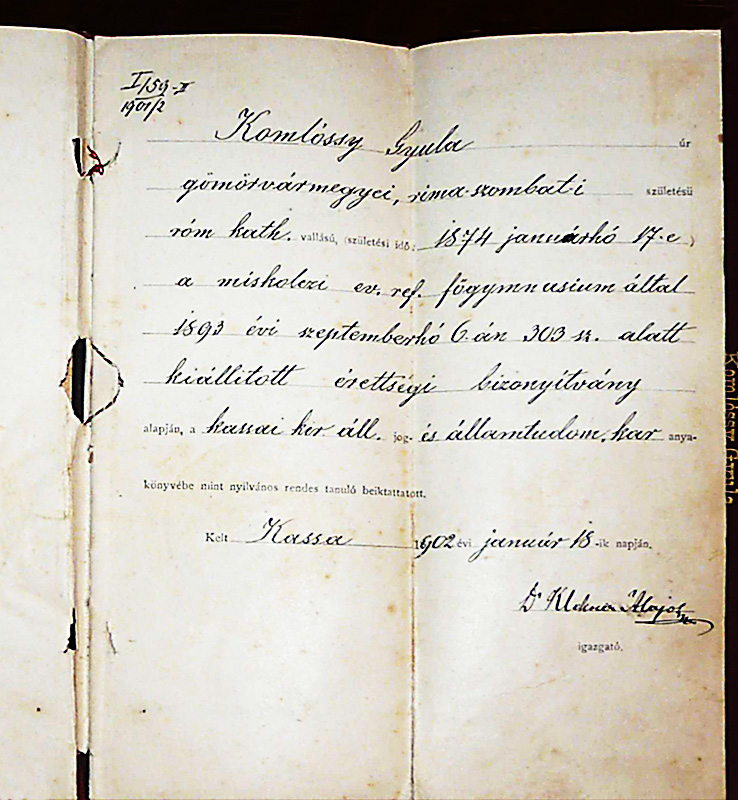 I/59-II
1901/2
Komlóssy Gyula úr
gömörvármegyei, rima-szombat-i születésü
róm kath. vallású, (születési idő: 1874 januárhó 17-e)
a miskolczi ev. ref. főgymnusium által
1893 évi szeptemberhó 6-án 303 sz. alatt
kiállított érettségi bizonyítvány
alapján, a kassai kir. áll. jog- és államtudom. kar anya-
könyvébe mint nyilvános rendes tanuló beiktattatott.
Kelt Kassa 1902 évi január 18-ik napján.
Dr Klekner Alajos
igazgató.
Komlóssy Gyula